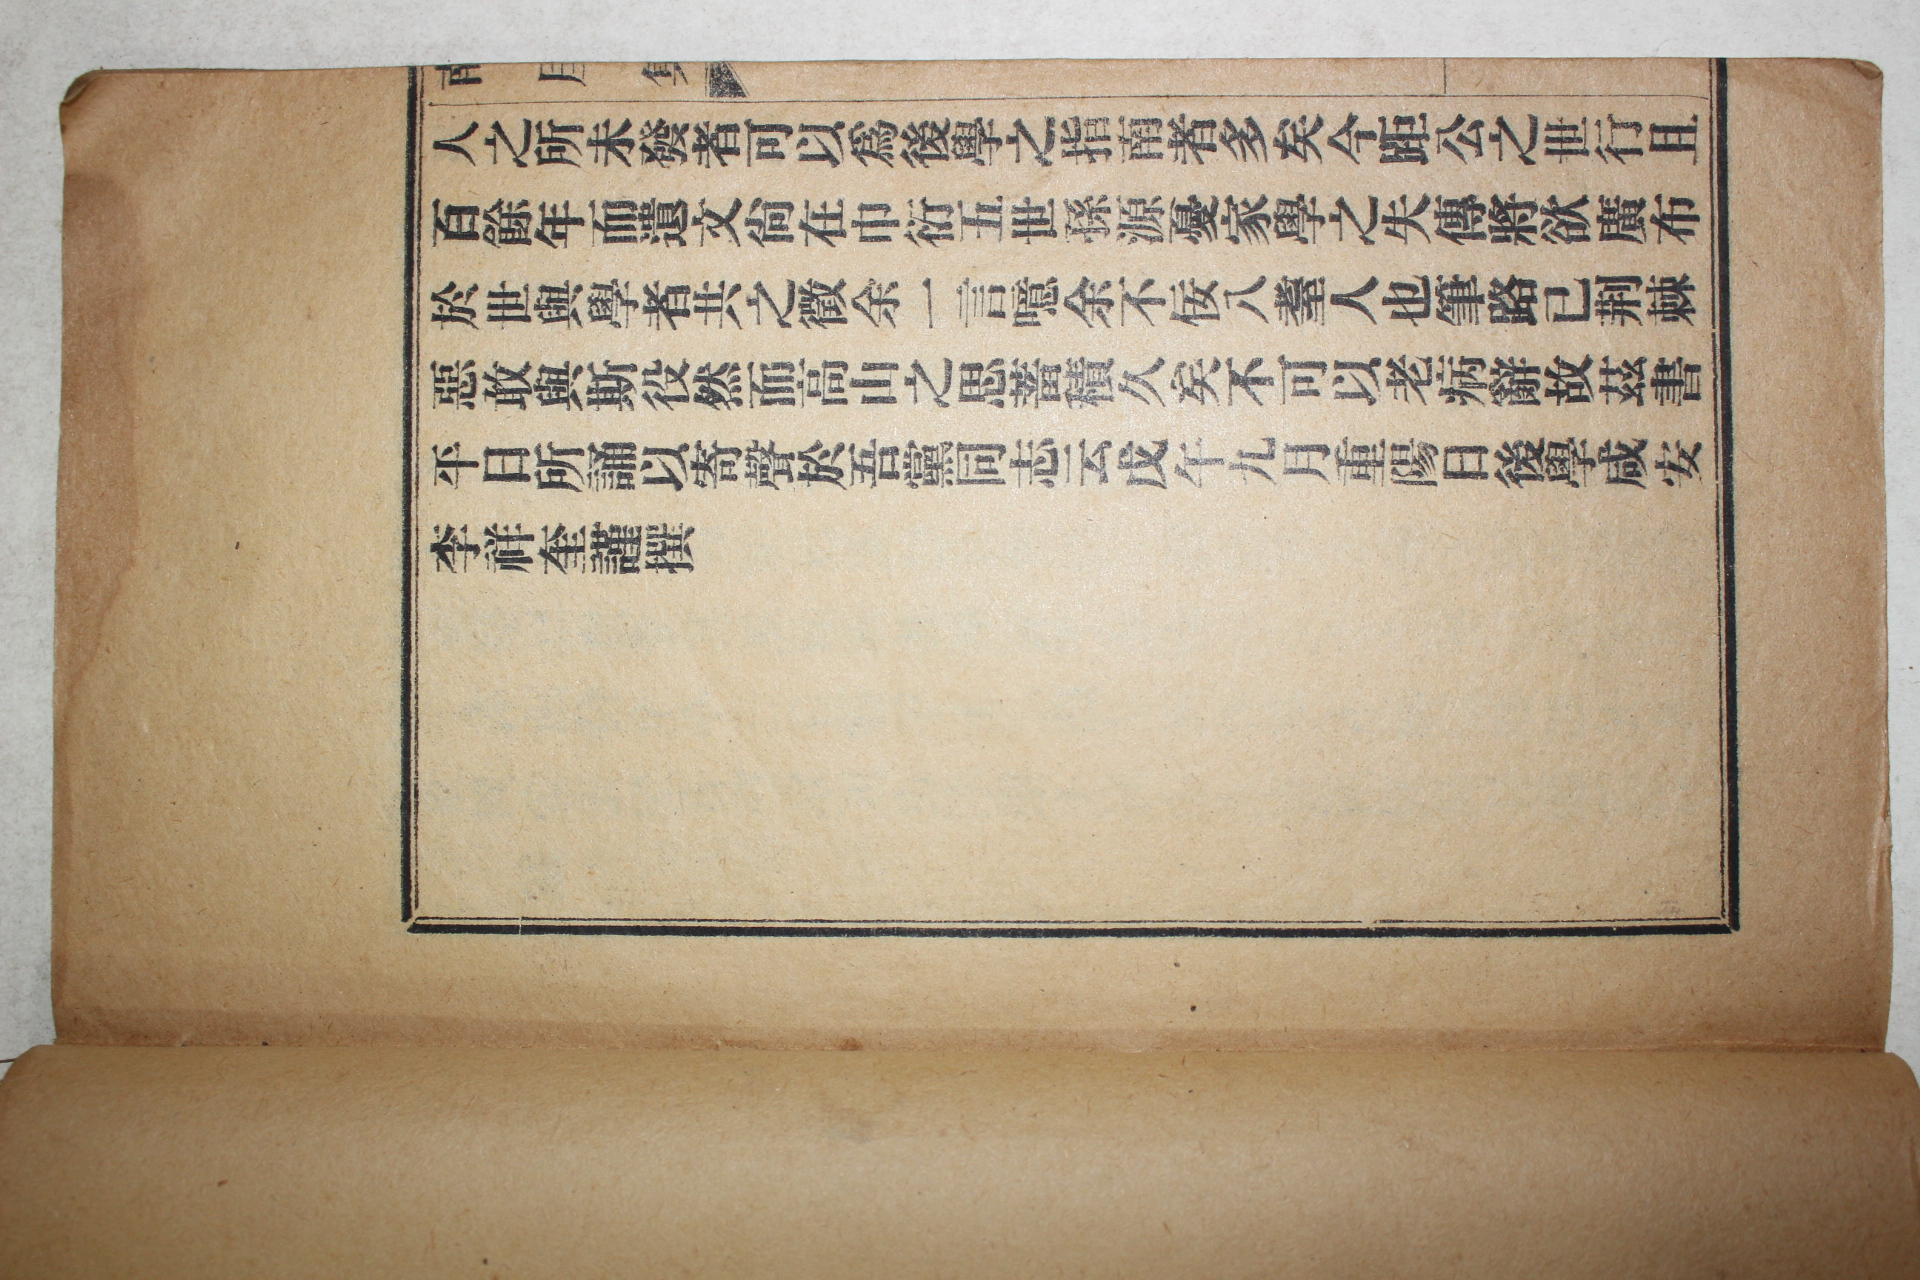 人之所未發者可以爲後學之指南者多矣今距公之世行且
百餘年而遺文尙在巾衍五世孫源憂家學之失傳將欲廣布
於世與學者共之徵余一言噫余不佞八耋人也筆路已荊棘
惡敢與斯役然而高山之思蓄積久矣不可以老病辭故玆書
平日所誦以寄聲於吾黨同志云戊午九月重陽日後學咸安
李祥奎謹撰